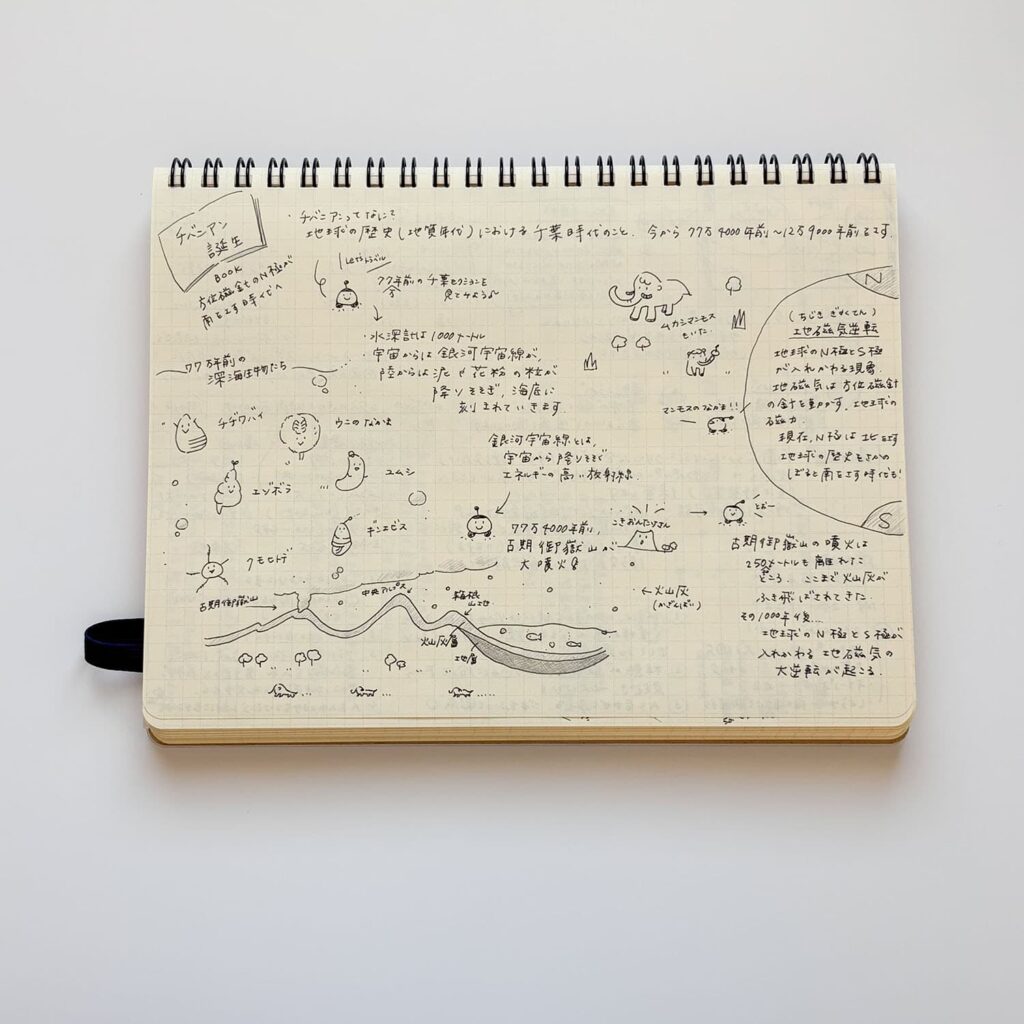 チバニアン
誕生
BOOK
方位磁針のN極が
南をさす時代へ
・チバニアンってなに?
地球の歴史(地質年代)における千葉時代のこと。今から77万4000年前~12万9000年前をさす。
Let'sトラベル
77年前の千葉セクションを
万
見てみよう
・水深計は1000メートル
・宇宙からは銀河宇宙線が、
陸からは泥や花粉の粒が
降りそそぎ、海底に
刻まれていきます。
77万年前の
深海生物たち
チヂワバイ
ウニのなかま
エゾボラ
ユムシ
ギンエビス
クモヒトデ
ムカシマンモス
もいた
マンモスのなかま!!
N
(ちじき ぎゃくてん)
地磁気逆転
地球のN極とS極
が入れかわる現象。
地磁気は方位磁針
の針を動かす、地球の
磁力。
現在、N極は北をさす
地球の歴史をさかの
ぼると南をさす時代も!
S
銀河宇宙線とは、
宇宙から降りそそぐ
エネルギーの高い放射線。
77万4000年前、
古期御嶽山が
大噴火
こきおんたけさん
古期御嶽山の噴火は
250メートルも離れた
ところ。ここまで火山灰が
ふき飛ばされてきた。
その1000年後…
地球のN極とS極が
入れかわる地磁気の
大逆転が起こる。
←火山灰
(かざんばい)
古期御嶽山
中央アルプス
箱根
山地
火山灰層
地層